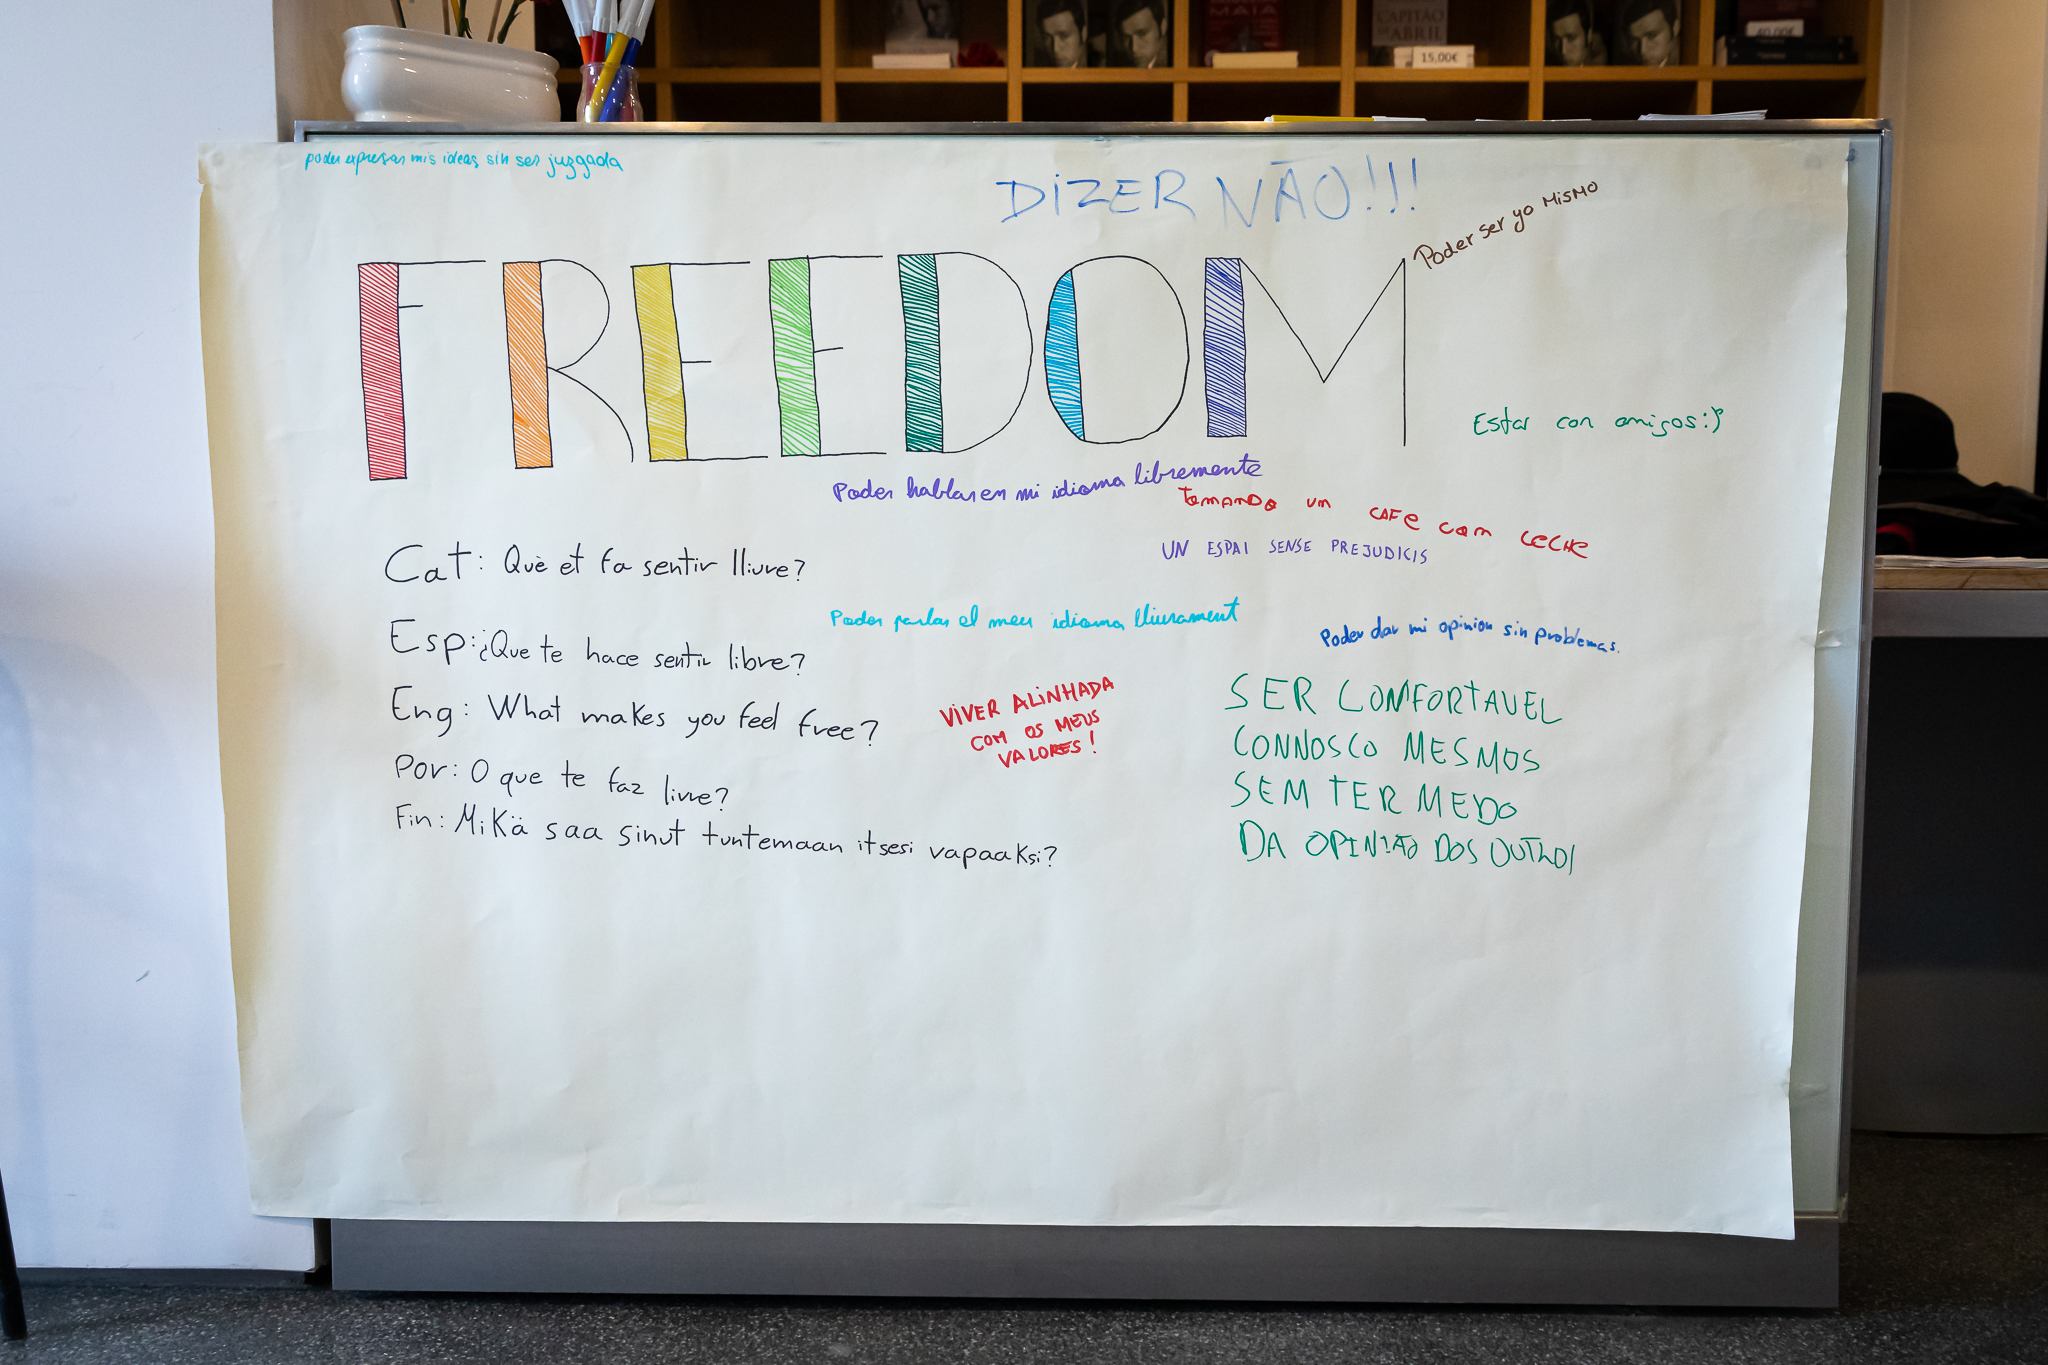 MAIA
CAPITÃO
DE ABRIL
15,00€
40,00€
poder expresar mis ideas sin ser juzgada
DIZER NÃO!!!
Poder ser yo MISMO
FREEDOM
Estar con amigos:)
Poder hablar en mi idioma libremente
tomando um CAFe com LeCHe
UN ESPAI SENSE PREJUDICIS
Cat: Què et fa sentir lliure?
Poder parlar el meu idioma lliurament
Poder dar mi opinion sin problemas.
Esp: ¿Que te hace sentir libre?
Eng: What makes you feel free?
VIVER ALINHADA
COM OS MEUS
VALORES!
SER COMFORTAVEL
CONNOSCO MESMOS
SEM TER MEDO
DA OPINIÃO DOS OUTROS
Por: O que te faz livre?
Fin: Mikä saa sinut tuntemaan itsesi vapaaksi?